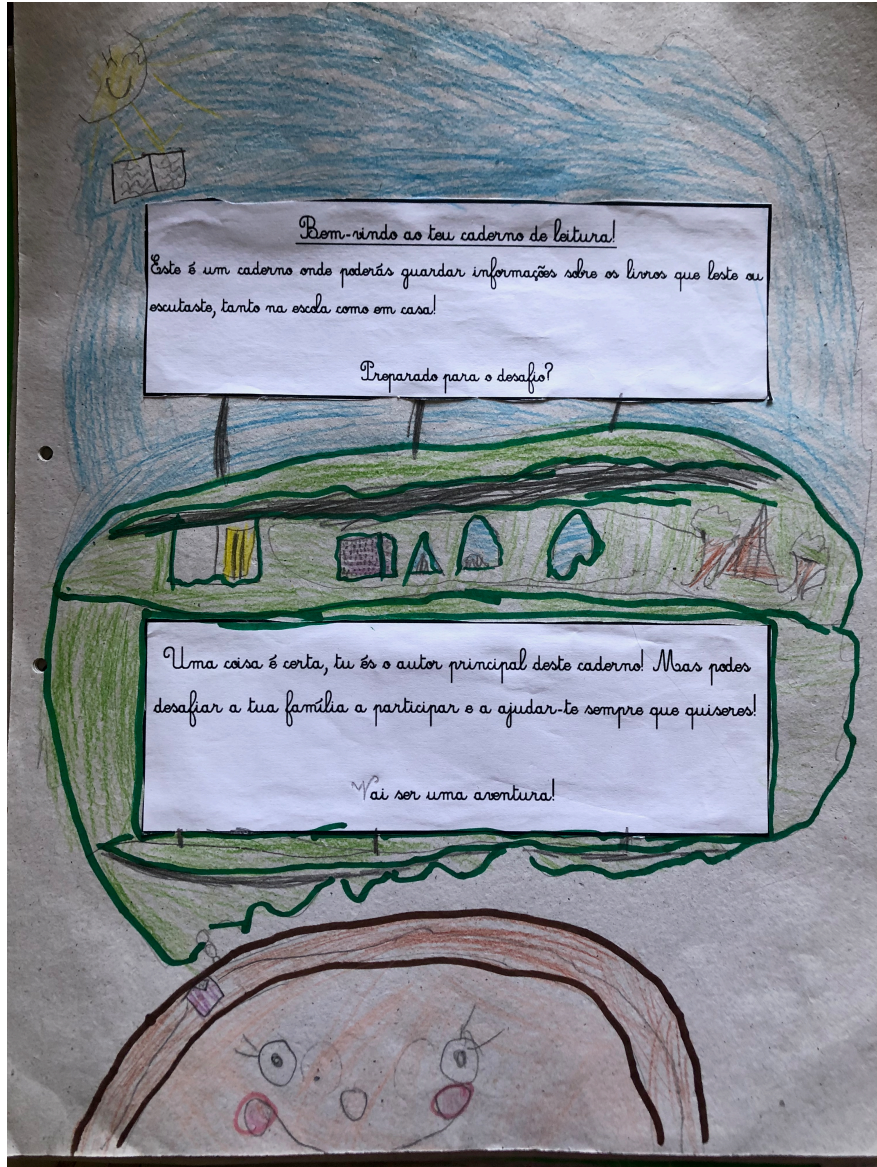 Bem-vindo ao teu caderno de leitura!
Este é um caderno onde poderás guardar informações sobre os livros que leste ou
escutaste, tanto na escola como em casa!
Preparado para o desafio?
Uma coisa é certa, tu és o autor principal deste caderno! Mas podes
desafiar a tua família a participar e a ajudar-te sempre que quiseres!
Vai ser uma aventura!